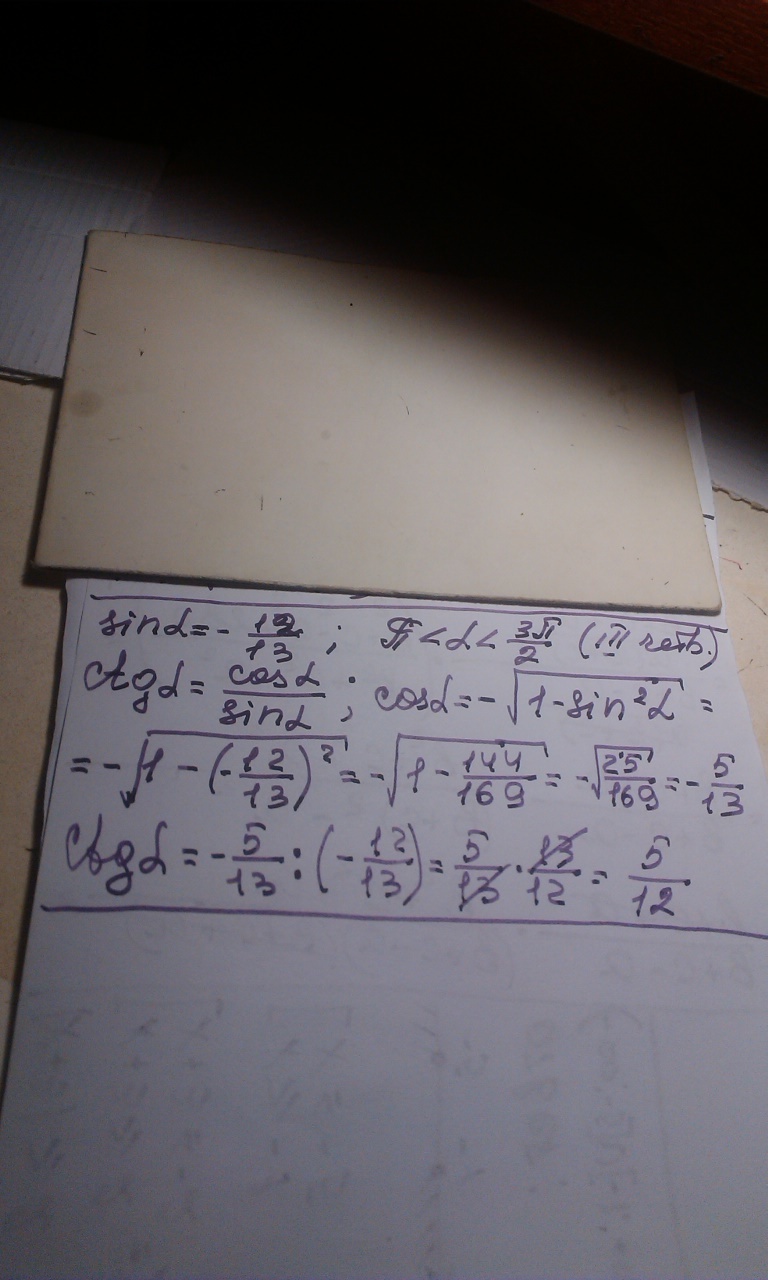 sinα = - 12/13 ; π < α < 3π/2 (III четв.)
ctgα = cosα/sinα ; cosα = -√(1 - sin²α) =
= -√(1 - (-12/13)²) = -√(1 - 144/169) = -√(25/169) = - 5/13
ctgα = - 5/13 : (- 12/13) = 5/13 · 13/12 = 5/12